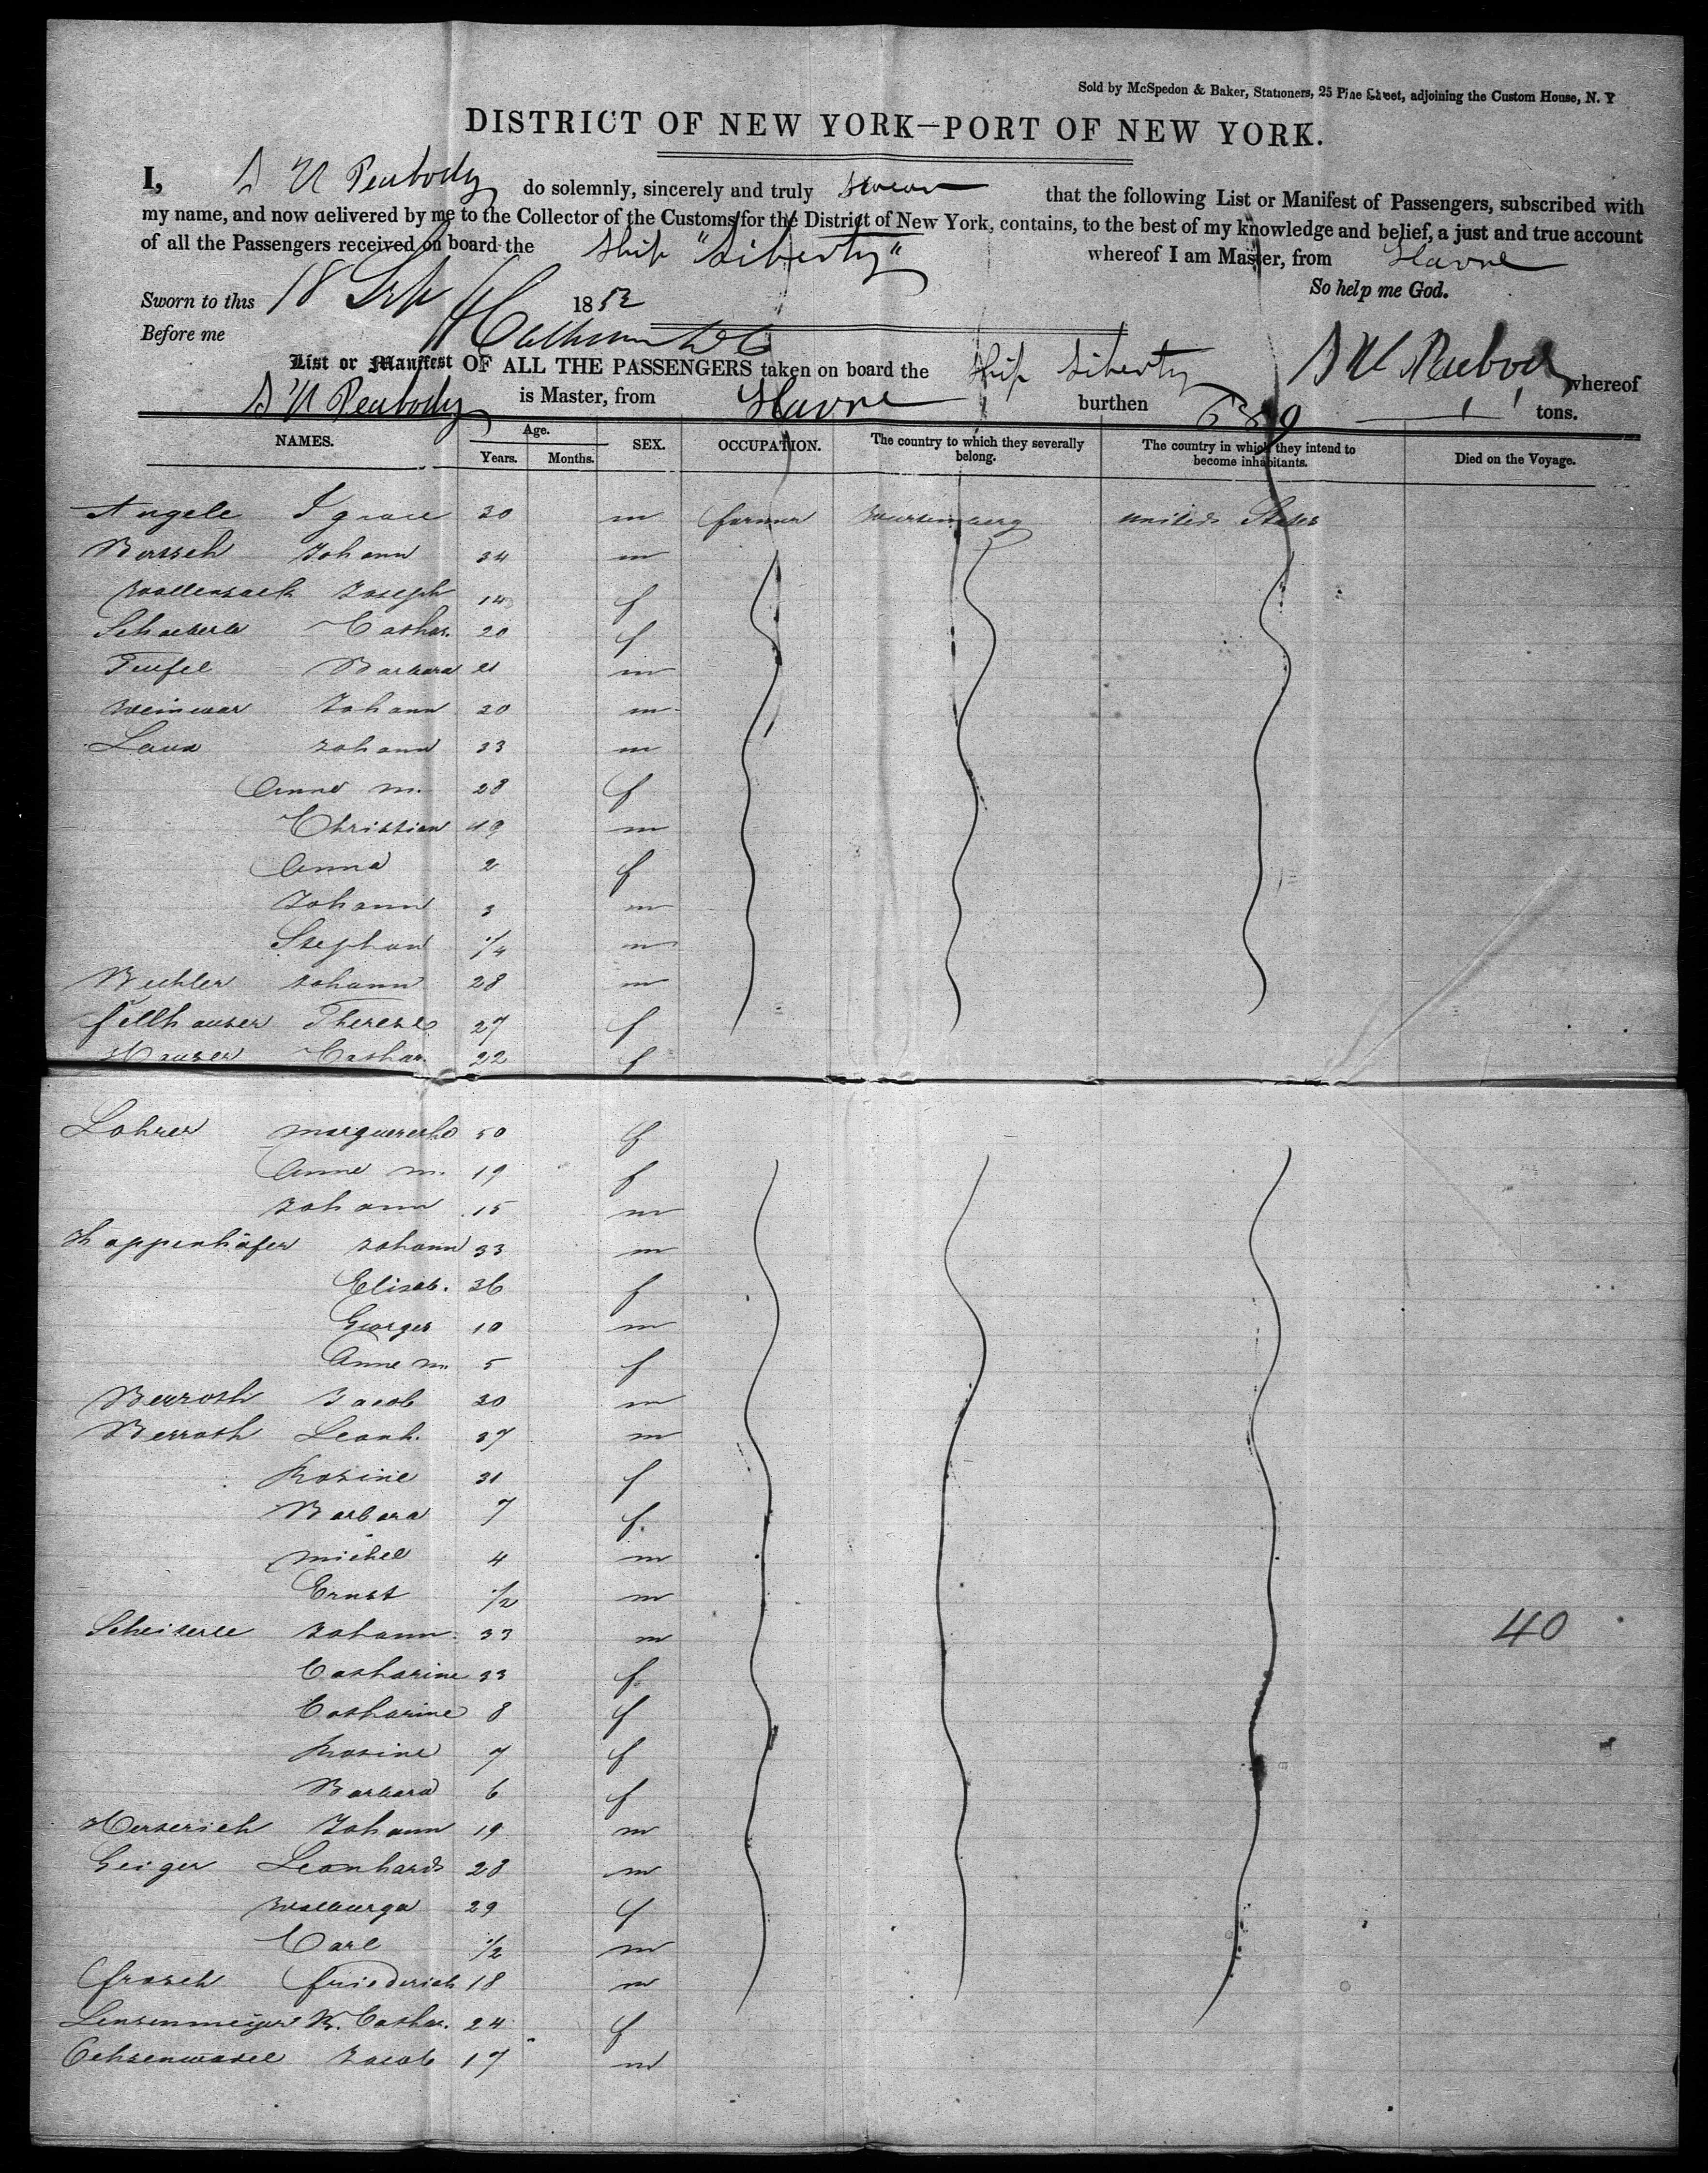 Sold by McSpedon & Baker, Stationers, 25 Pine Street, adjoining the Custom House, N. Y
DISTRICT OF NEW YORK—PORT OF NEW YORK.
I, Peabody do solemnly, sincerely and truly swear that the following List or Manifest of Passengers, subscribed with
my name, and now delivered by me to the Collector of the Customs for the District of New York, contains, to the best of my knowledge and belief, a just and true account
of all the Passengers received on board the Ship "Liberty" whereof I am Master, from Havre
So help me God.
Sworn to this 18 Sep 1852
Before me
List or Manifest OF ALL THE PASSENGERS taken on board the Ship Liberty whereof
Peabody is Master, from Havre burthen tons.
NAMES. Age. Years. Months. SEX. OCCUPATION. The country to which they severally belong. The country in which they intend to become inhabitants. Died on the Voyage.
Angele Ignace 30 m farmer Wurtemberg United States
Johann 34 m
Wallensack Joseph 14 f
Schaeberle Cathar. 20 f
Teufel Barbara 21 m
Weinmar Johann 20 m
Laux Johann 33 m
Anne m. 28 f
Christian 19 m
Anna 2 f
Johann 3 m
Stephan 1/4 m
Bechler Johann 28 m
Fellhauser Therese 27 f
Hauser Cathar. 22 f
Lohrer Marguerethe 50 f
Anne m. 19 f
Johann 15 m
Happenhäfer Johann 33 m
Elisab. 36 f
George 10 m
Anne m. 5 f
Berroth Jacob 30 m
Berroth Leonh. 37 m
Rosine 31 f
Barbara 7 f
Michel 4 m
Ernst 1/2 m
Scheiterle Johann 33 m
Catharine 33 f
40
Catharine 8 f
Rosine 7 f
Barbara 6 f
Herterich Johann 19 m
Geiger Leonhard 28 m
Walburga 29 f
Carl 1/2 m
Frosch Friederich 18 m
Lensenmeijer K. Cathar. 24 f
Ochsenwadel Jacob 17 m